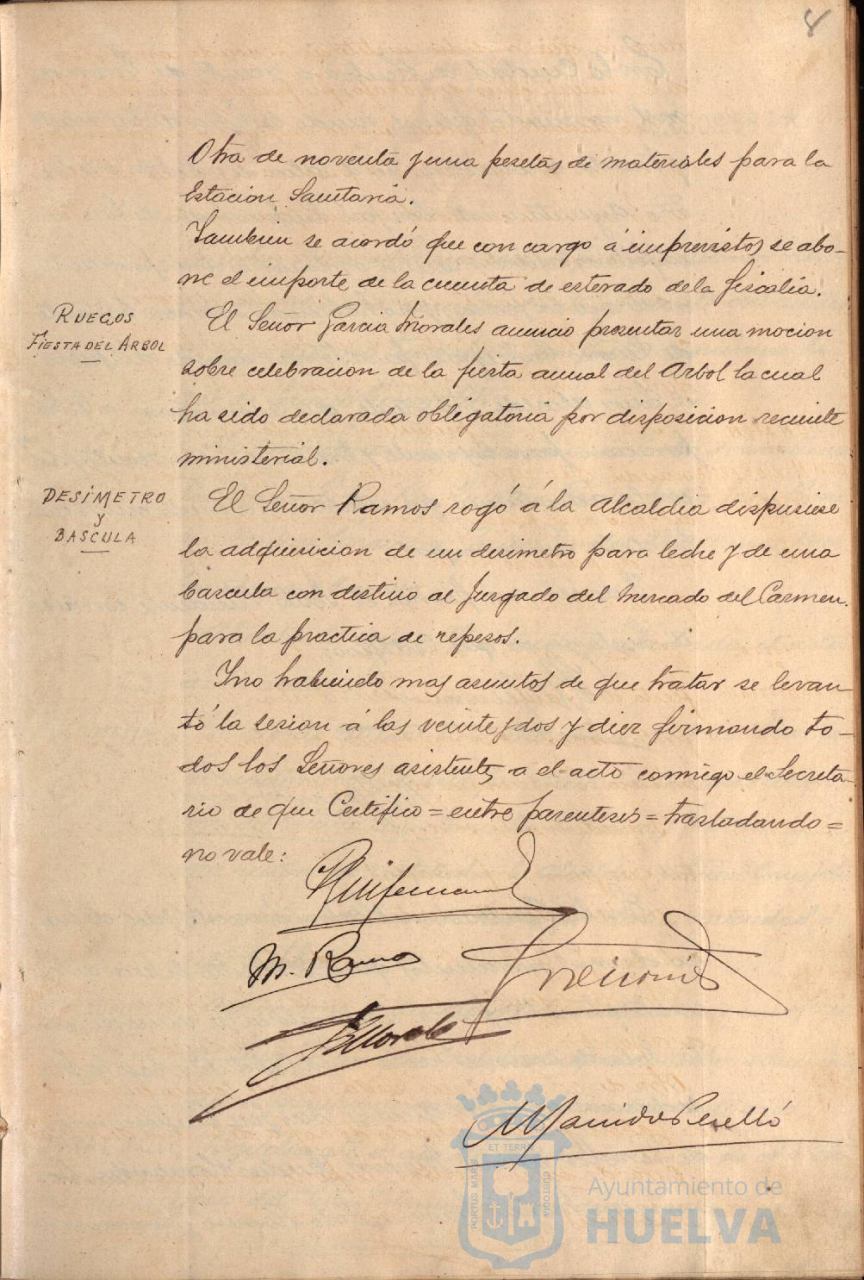 8
Otra de noventa y una pesetas de materiales para la
Estacion Sanitaria.
Tambien se acordó que con cargo á imprevistos se abo-
ne el importe de la cuenta de esterado de la fiscalia.
RUEGOS
FIESTA DEL ARBOL
El Señor Garcia Morales anuncio presentar una mocion
sobre celebracion de la fiesta anual del Arbol la cual
ha sido declarada obligatoria por disposicion reciente
ministerial.
DESIMETRO
Y
BASCULA
El Señor Ramos rogó á la Alcaldia dispusiese
la adquisicion de un desimetro para leche y de una
bascula con destino al Juzgado del Mercado del Carmen
para la practica de repesos.
Y no habiendo mas asuntos de que tratar se levan
tó la sesion á las veinte y dos y diez firmando to-
dos los Señores asistentes a el acto conmigo el Secreta-
rio de que Certifico = entre parentesis = trasladando =
no vale:
M. Ramos
ET TERRÆ
PORTUS MARIS
CUSTODIA
Ayuntamiento de
HUELVA